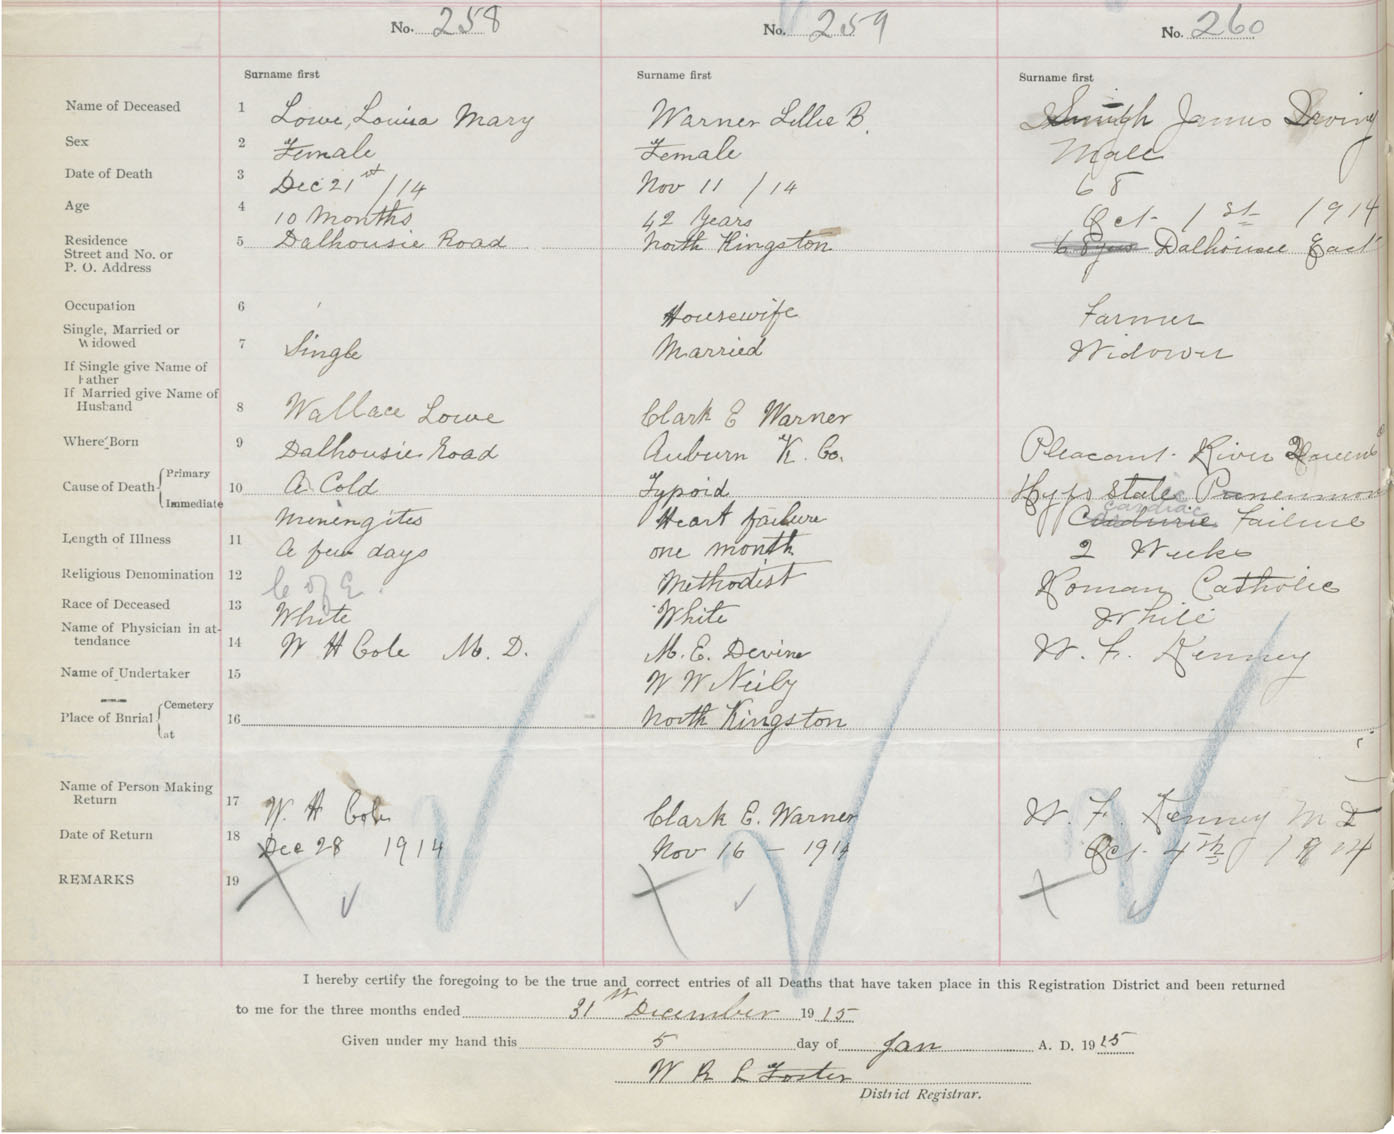 No. 258 No. 259 No. 260
Surname first Surname first Surname first
Name of Deceased 1 Lowe, Louisa Mary Warner Lillie B. James Irving
Sex 2 Female Female Male
Date of Death 3 Dec 21st /14 Nov 11 /14 68
Age 4 10 Months 42 Years Oct 1st 1914
Residence
Street and No. or 5 Dalhousie Road North Kingston 68 yrs Dalhousie East
P. O. Address
Occupation 6 Housewife Farmer
Single, Married or
Widowed 7 Single Married Widower
If Single give Name of
Father
If Married give Name of
Husband 8 Wallace Lowe Clark E Warner
Where Born 9 Dalhousie Road Auburn K. Co. Pleasant River Queens Co
Cause of Death Primary 10 A Cold Typoid Hypostatic Pneumonia
Immediate Menengites Heart failure cardiac Failure
Length of Illness 11 A few days one month 2 Weeks
Religious Denomination 12 C of E. Methodist Roman Catholic
Race of Deceased 13 White White White
Name of Physician in at-
tendance 14 W H Cole M. D. M. E. Devine W. F. Kenney
Name of Undertaker 15 W W Neily
Place of Burial Cemetery 16 North Kingston
at
Name of Person Making
Return 17 W. H Cole Clark E. Warner W. F. Kenney M D
Date of Return 18 Dec 28 1914 Nov 16 - 1914 Oct. 4th 1914
REMARKS 19
I hereby certify the foregoing to be the true and correct entries of all Deaths that have taken place in this Registration District and been returned
to me for the three months ended 31st December 19 15
Given under my hand this 5 day of Jan A. D. 19 15
W R L Foster
District Registrar.